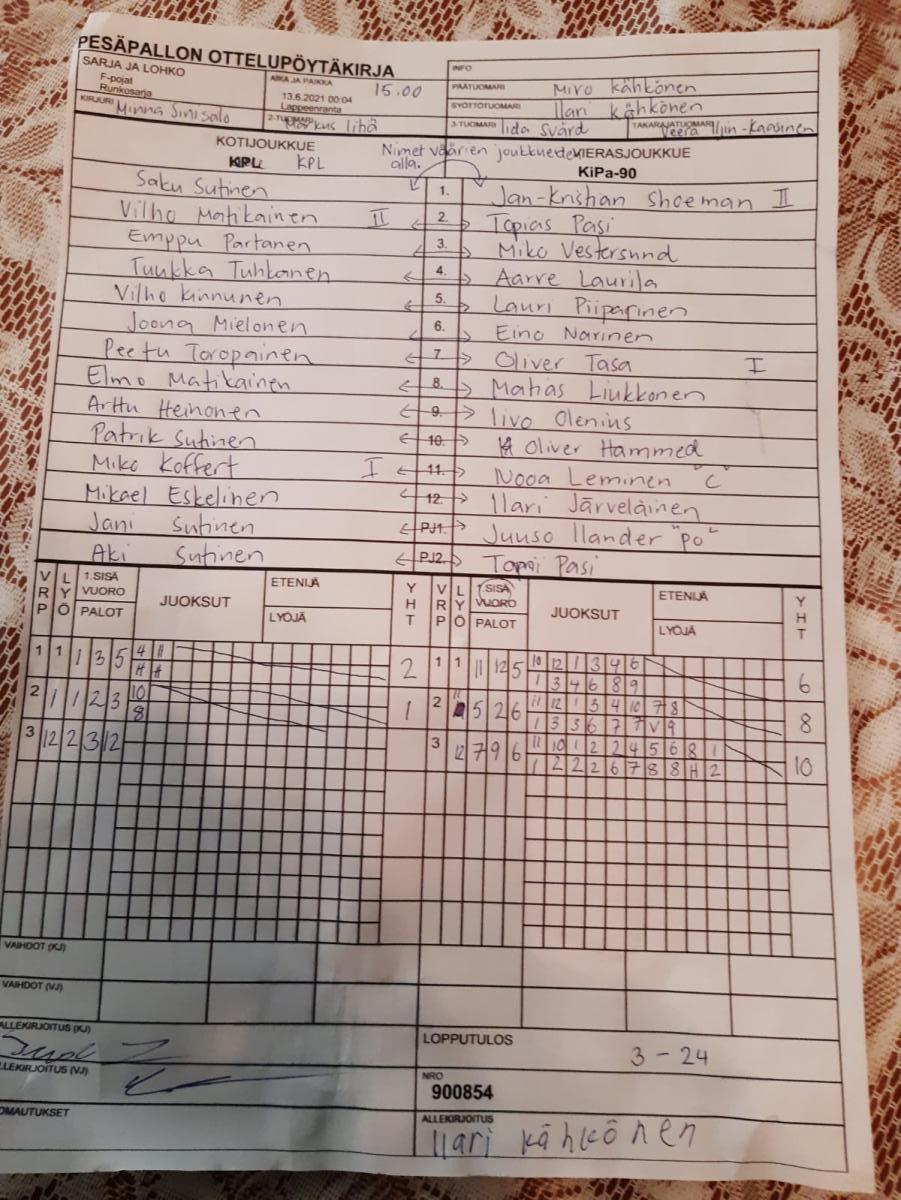 PESÄPALLON OTTELUPÖYTÄKIRJA
SARJA JA LOHKO
F-pojat
Runkosarja
AIKA JA PAIKKA
15.00
13.6.2021 00:04
Lappeenranta
INFO
PÄÄTUOMARI Miro Kähkönen
SYÖTTÖTUOMARI Ilari Kähkönen
KIRJURI Minna Sinisalo
2-TUOMARI Markus Lihä
3-TUOMARI Iida Svärd
TAKARAJATUOMARI Veera Iljin-Kaasinen
KOTIJOUKKUE
KPL KPL
Nimet väärien joukkueiden
alla.
VIERASJOUKKUE
KiPa-90
Saku Sutinen 1. Jan-Kristian Shoeman II
Vilho Matikainen II 2. Topias Pasi
Emppu Partanen 3. Miko Vestersund
Tuukka Tuhkanen 4. Aarre Laurila
Vilho Kinnunen 5. Lauri Piiparinen
Joona Mielonen 6. Eino Narinen
Peetu Toropainen 7 Oliver Tasa I
Elmo Matikainen 8. Matias Liukkonen
Arttu Heinonen 9. Iivo Olenius
Patrik Sutinen 10. Oliver Hammed
Miko Koffert I 11. Nooa Leminen "C"
Mikael Eskelinen 12. Ilari Järveläinen
Jani Sutinen PJ1. Juuso Ilander "po"
Aki Sutinen PJ2. Pasi
VRP LYÖ 1.SISÄ VUORO PALOT JUOKSUT ETENIJÄ LYÖJÄ YHT
VRP LYÖ 1.SISÄ VUORO PALOT JUOKSUT ETENIJÄ LYÖJÄ YHT
1 1 1 3 5 4 11 2
H H
1 1 11 12 5 10 12 1 3 4 6 6
1 3 4 6 8 9
2 1 1 2 3 10 1
8
2 11 5 2 6 11 12 1 3 4 10 7 8 8
1 3 3 6 7 7 V 9
3 12 2 3 12
3 12 7 9 6 11 10 1 2 2 4 5 6 8 1 10
1 2 2 2 6 7 8 8 H 2
VAIHDOT (KJ)
VAIHDOT (VJ)
ALLEKIRJOITUS (KJ)
LOPPUTULOS
3 - 24
ALLEKIRJOITUS (VJ)
NRO
900854
HUOMAUTUKSET
ALLEKIRJOITUS
Ilari Kähkönen